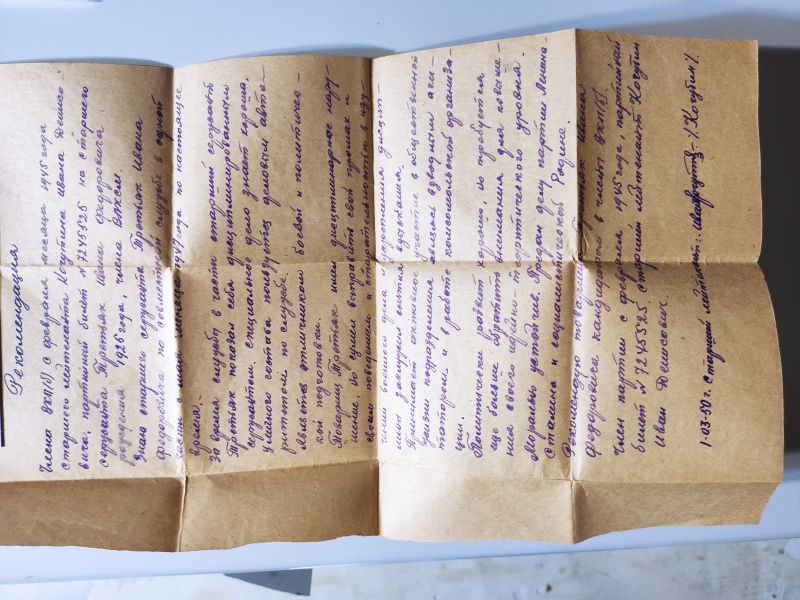 Рекомендация
Члена ВКП(б) с февраля месяца 1945 года
старшего лейтенанта Кочубина Ивана Денисо-
вича, партийный билет №7245525 на старшего
сержанта Третьяк Ивана Федоровича,
рождения 1926 года, члена ВЛКСМ.
Знаю старшего сержанта Третьяк Ивана
Федоровича по совместной службе в одной
части с мая месяца 1947 года по настоящее
время.
За время службы в части старший сержант
Третьяк показал себя дисциплинированным
сержантом, специальное дело знает хорошо.
У личного состава пользуется деловым авто-
ритетом по службе.
Является отличником боевой и политичес-
кой подготовки.
Товарищ Третьяк имел дисциплинарное нару-
шение, но сумел выправить свой промах и
своим поведением и старательностью в изу-
чении военного дела и укреплении дисцип-
лины заслужил снятия взыскания.
Принимает активное участие в общественной
жизни подразделения являясь взводным аги-
татором и в работе комсомольской организа-
ции.
Политически развит хорошо, но требуется
еще больше обратить внимания для повыше-
ния своего идейно-теоретического уровня.
Морально устойчив. Предан делу партии Ленина
Сталина и социалистической Родине.
Рекомендую товарища Третьяк Ивана
Федоровича кандидатом в члены ВКП(б).
Член партии с февраля 1945 года, партийный
билет №7245525 старший лейтенант Кочубин
Иван Денисович.
1-03-50г. Старший лейтенант: /Кочубин/